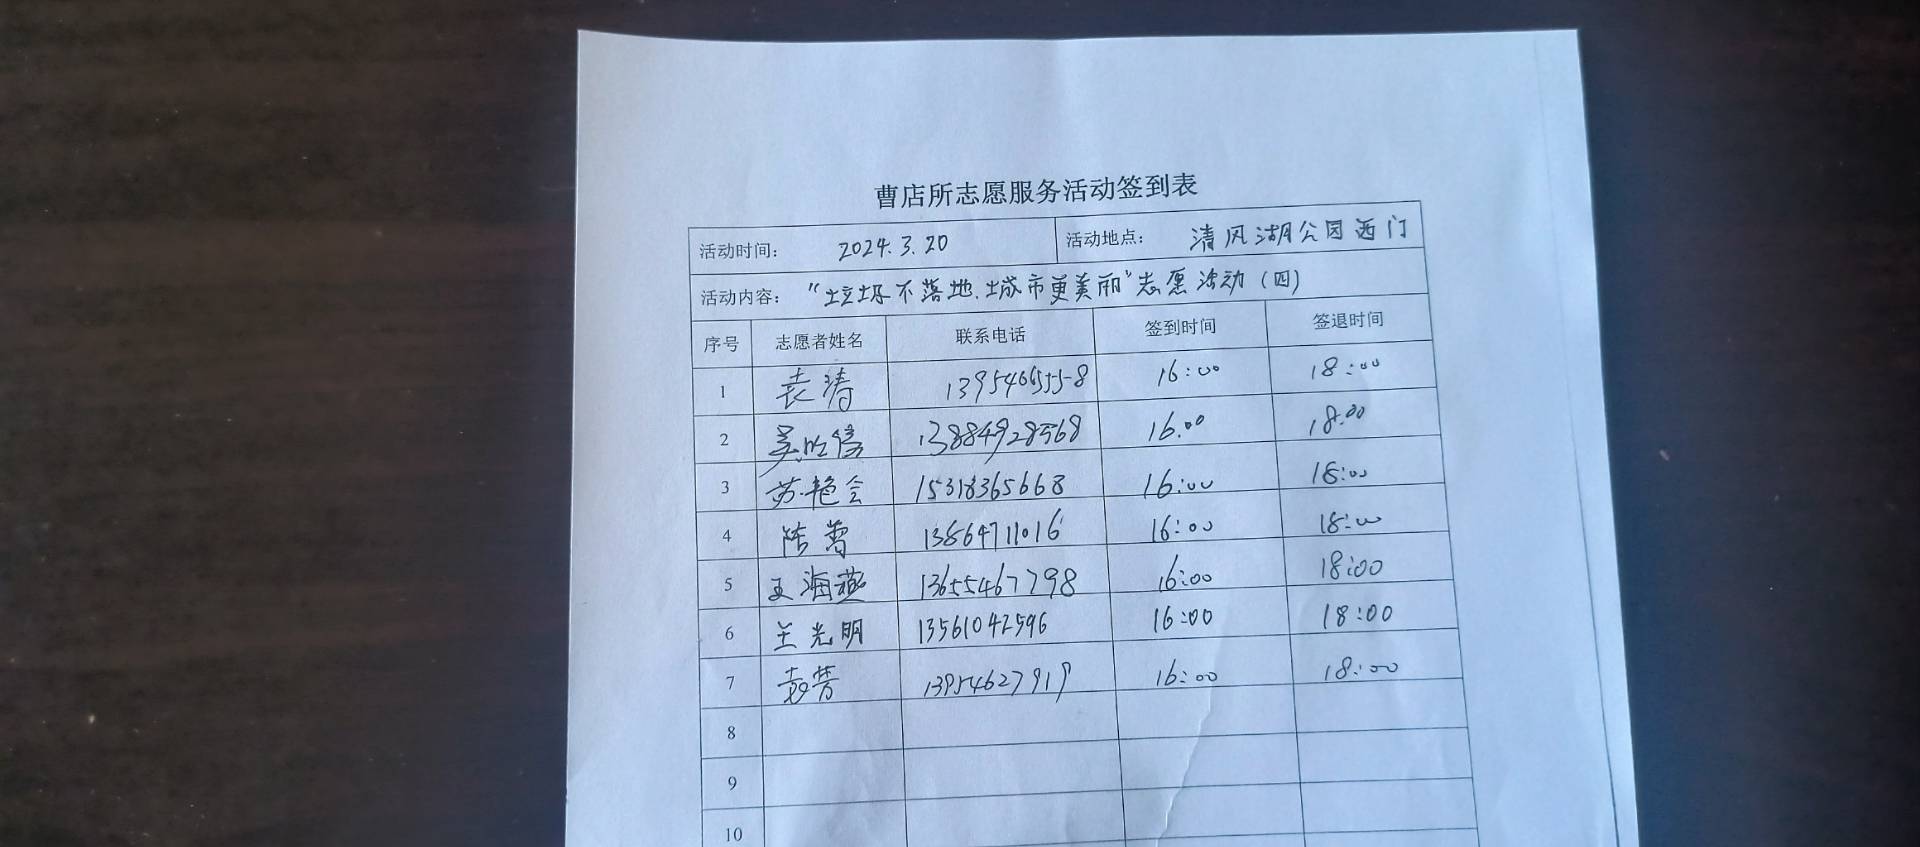 曹店所志愿服务活动签到表
活动时间： 2024.3.20 活动地点： 清风湖公园西门
活动内容： “垃圾不落地.城市更美丽”志愿活动（四）
序号 志愿者姓名 联系电话 签到时间 签退时间
1 袁涛 13954665558 16:00 18:00
2 吴 13884928568 16.00 18:00
3 苏艳会 15318365668 16:00 18:00
4 陈蕾 13864711016 16:00 18:00
5 王海燕 13655467798 16:00 18:00
6 兰光明 13561042596 16:00 18:00
7 袁芳 13954627919 16:00 18:00
8
9
10